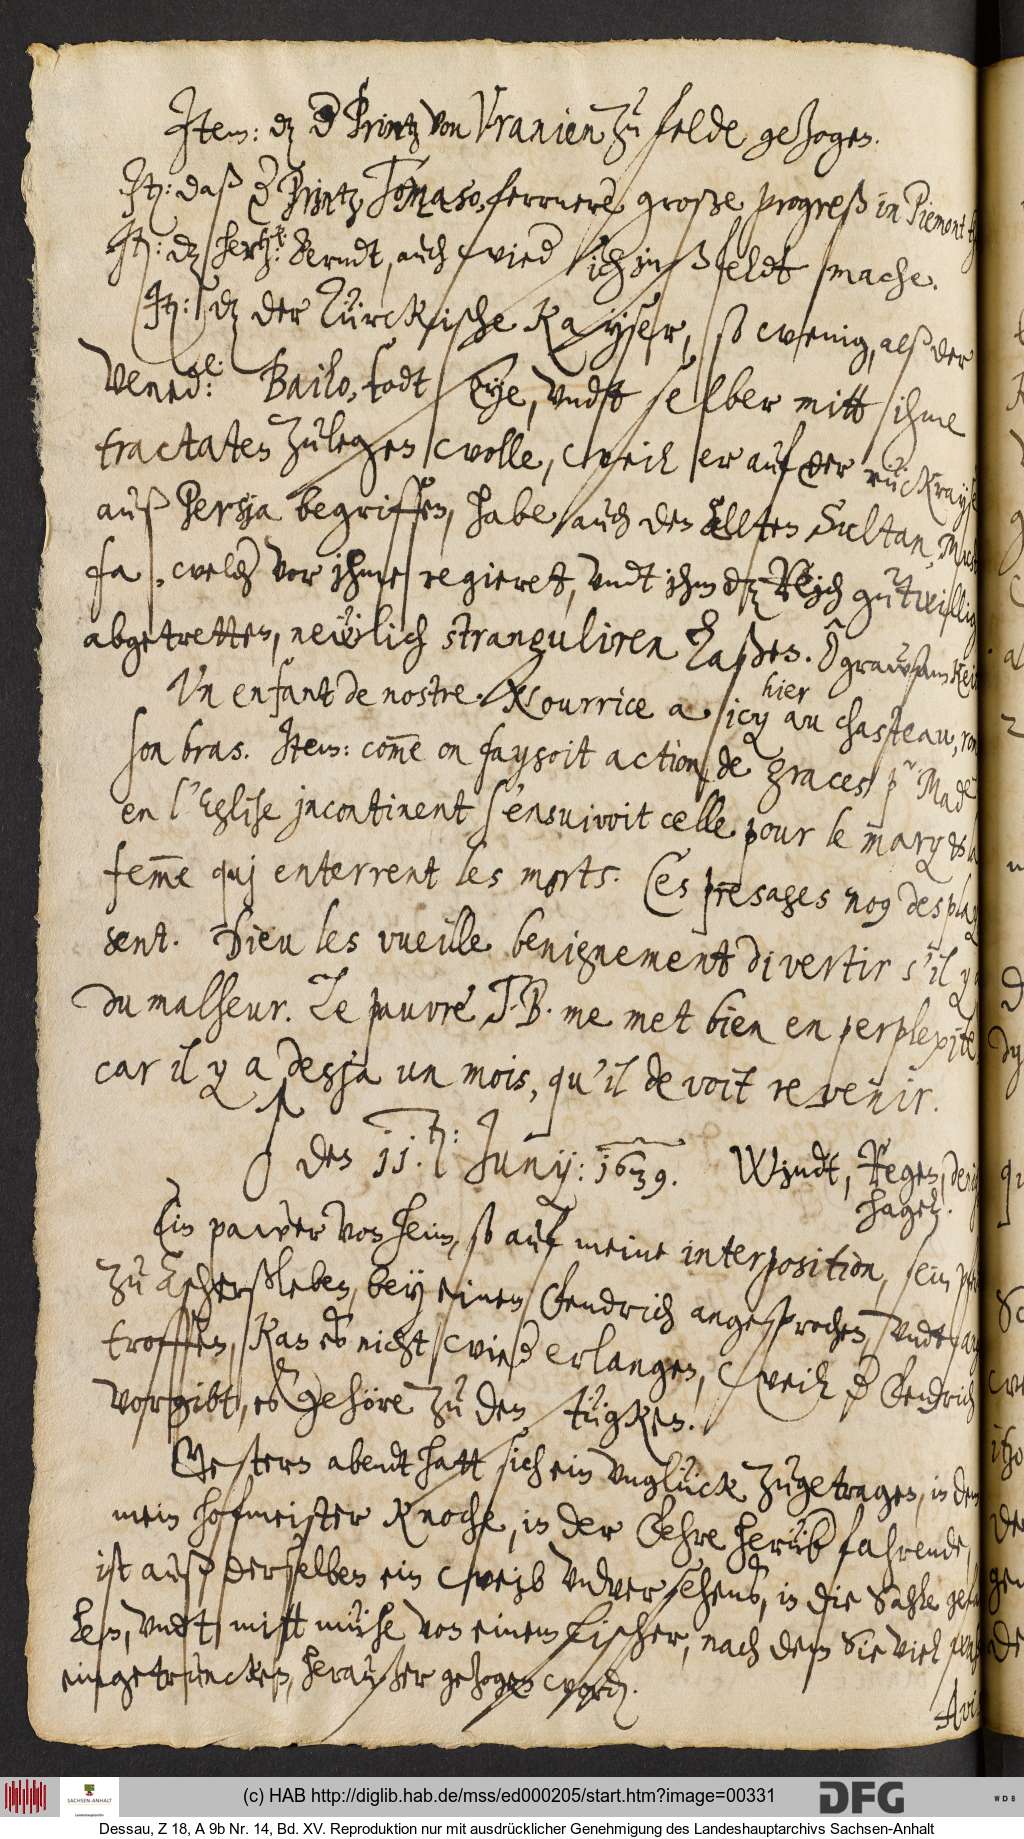 Item: dz der Printz von Vranien zu felde gezogen.
It: daß der Printz Tomaso, fernere große progreß in Piemont
It: dz herz: Berndt, auch wieder sich inß feldt mache.
It: dz der Türckische Kayser, so wenig, alß der
Vened: Bailo, todt seye, vndt selber mitt ihme
tractaten zulegen wolle, weil er auf der rückrayse
auß Persia begriffen, habe auch den allten Sultan, Musta
fa, welcher vor ihme regieret, vndt ihm dz Reich gutwillig
abgetretten, newlich stranguliren laßen. O grausam
Un enfant de nostre Nourrice a icy hier au chasteau, rom
son bras. Item: come on faysoit action de graces pr Made
en l'Eglise incontinent s'ensuivoit celle pour le mary & la
feme qui enterrent les morts. Ces presages nos desplay
sent. Dieu les vueille benignement divertir s'il y a
du malheur. Le pauvre T.B. me met bien en perplexite
car il y a desja un mois, qu'il devoit revenir.
den 11. Juny: 1639. Windt, Regen,
hagel.
Ein pawer von heim, so auf meine interposition, sein pferd
zu Aschersleben, bey einem Cendrich angesprochen, vndt an
troffen, kan es nicht wieder erlangen, weil der Cendrich
vorgibt, es gehöre zu den stücken.
Gestern abendt hatt sich ein vnglück zugetragen, in dem
mein hofmeister Knoche, in der Fehre herüber fahrende,
ist auß derselben ein weib vnversehens, in die Sahle gefal
len, vndt mitt mühe von einem Fischer, nach dem Sie viel
eingetruncken, heraußer gezogen worden.
Avi
(c) HAB http://diglib.hab.de/mss/ed000205/start.htm?image=00331
SACHSEN-ANHALT
DFG
WDB
Dessau, Z 18, A 9b Nr. 14, Bd. XV. Reproduktion nur mit ausdrücklicher Genehmigung des Landeshauptarchivs Sachsen-Anhalt